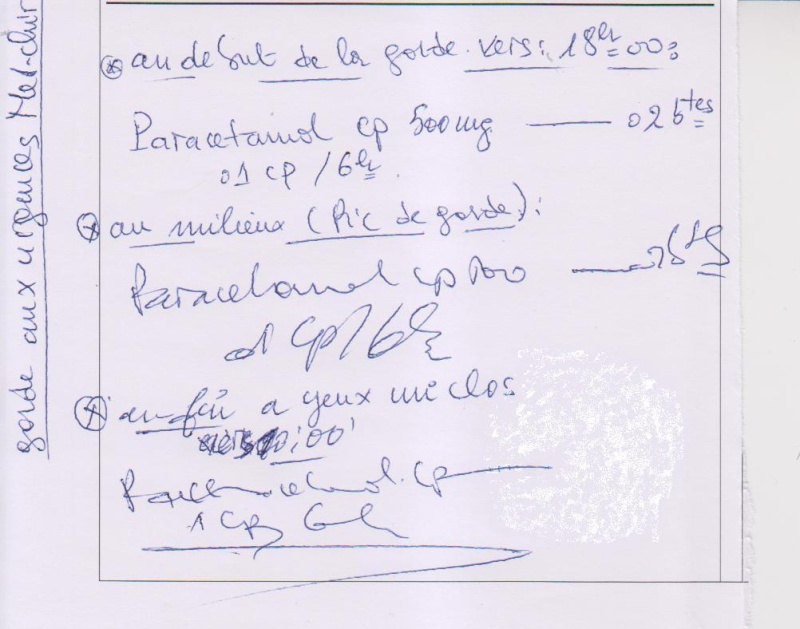 garde aux urgences Med-chir
au debut de la garde vers: 18h00:
Paracetamol cp 500mg — 02 btes
01 cp / 6h.
au milieux (Pic de garde):
Paracetamol cp 500 —
01 cp / 6h
en fin a yeux mi clos
00'
Paracetamol cp —
1 cp